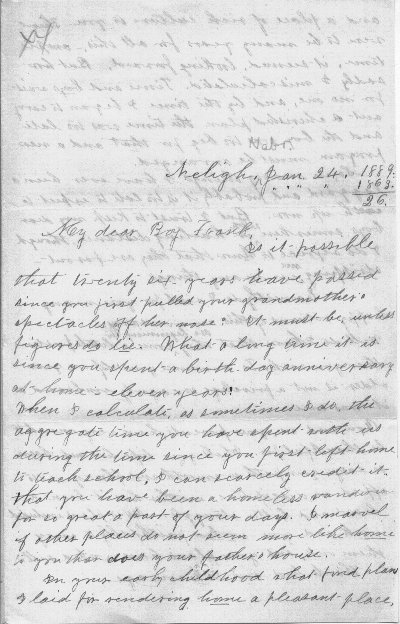 XY
Nebr.
Neligh, Jan. 24. 1889.
" " " 1863.
26.
My dear Boy Frank,
Is it possible
that twenty six years have passed
since you first pulled your grandmother's
spectacles off her nose? It must be, unless
figures do lie. What a long time it is
since you spent a birth day anniversary
at home - eleven years!
When I calculate, as sometimes I do, the
aggregate time you have spent with us
during the time since you first left home
to teach school, I can scarcely credit it.
that you have been a homeless wanderer
for so great a part of your days. I marvel
if other places do not seem more like home
to you than does your father's house.
In your early childhood what fond plans
I laid for rendering home a pleasant place,